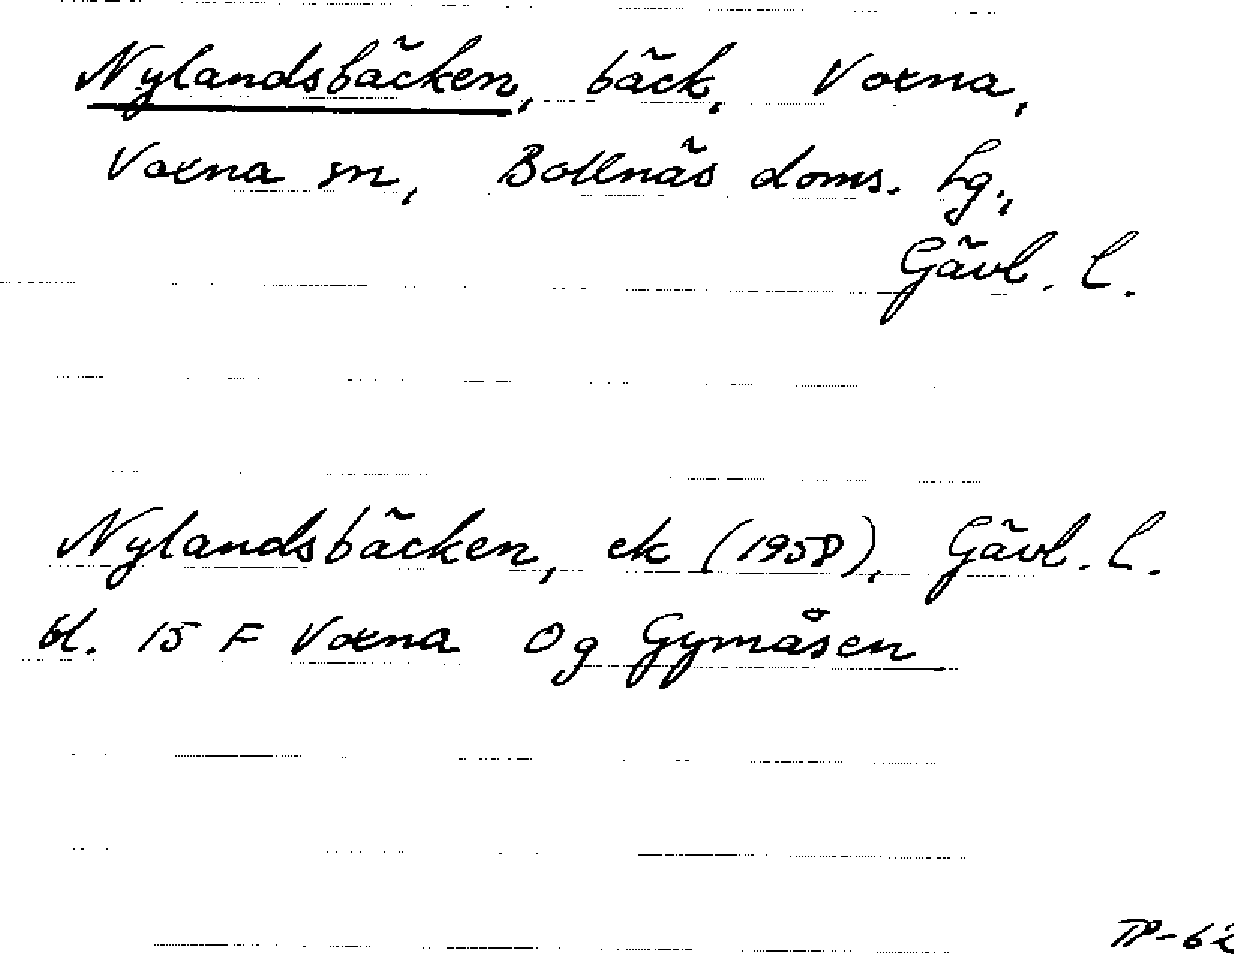 Nylandsbäcken, bäck, Voxna,
Voxna sn, Bollnäs doms. hg.,
Gävl. l.
Nylandsbäcken, ek (1958), Gävl. l.
bl. 15 F Voxna 0g Gymåsen
TP-62